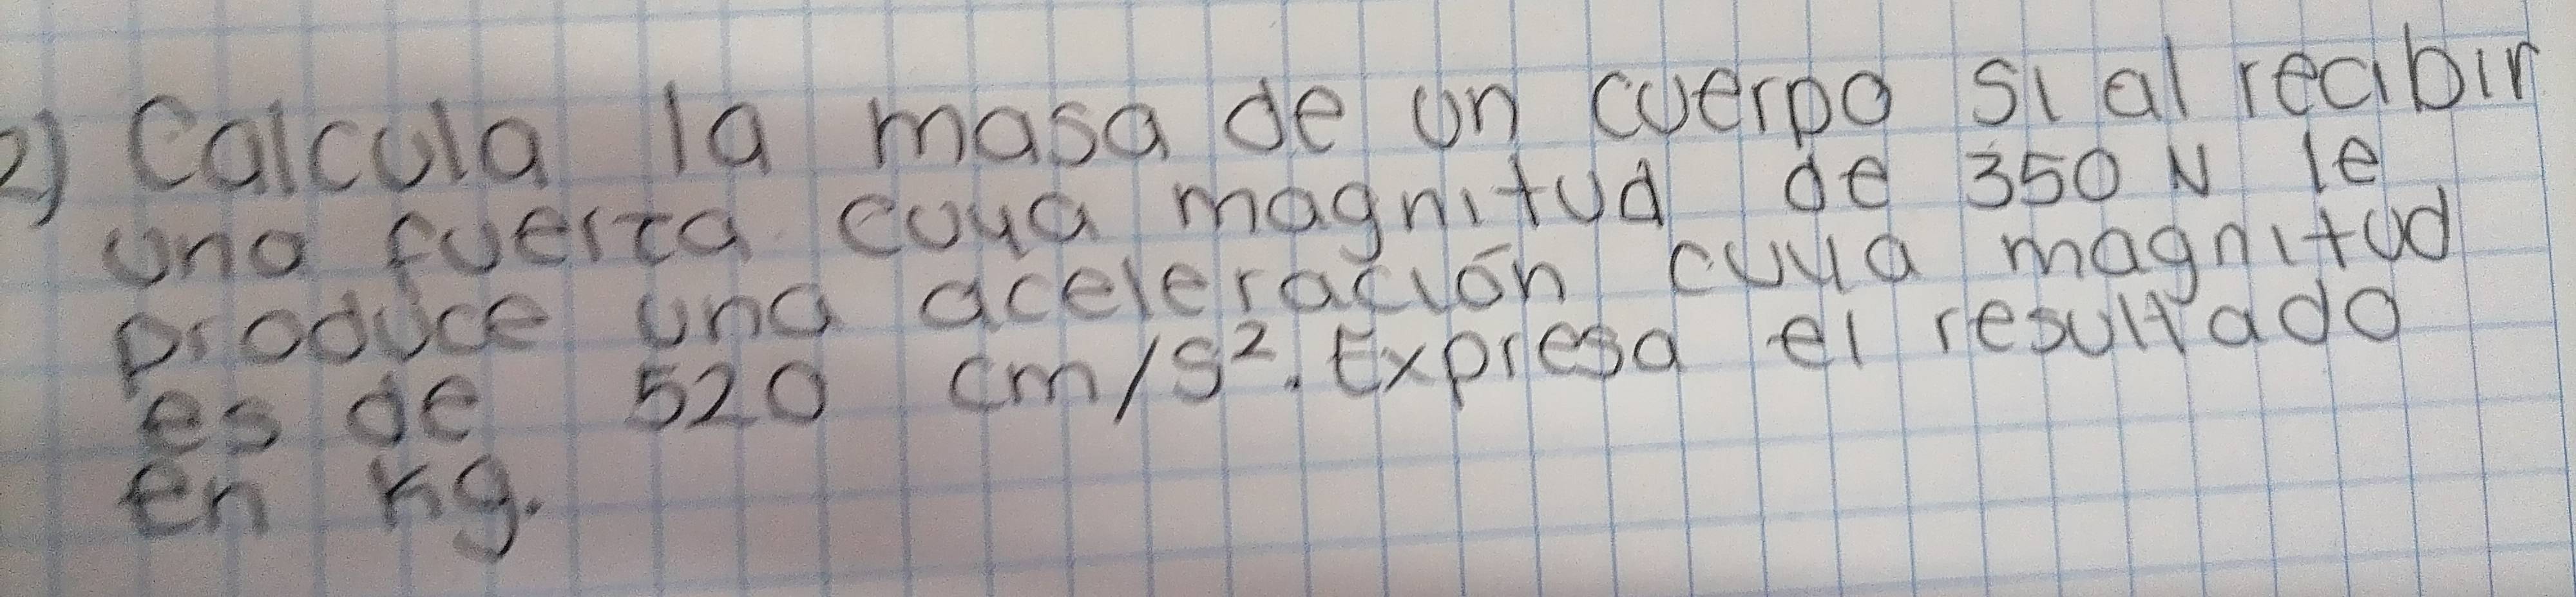 2) Calcula la masa de un cuerpo si al recibir
una fuerza cuya magnitud de 350 N le
produce una aceleración cuya magnitud
es de 520 cm/s². Expresa el resultado
en kg.